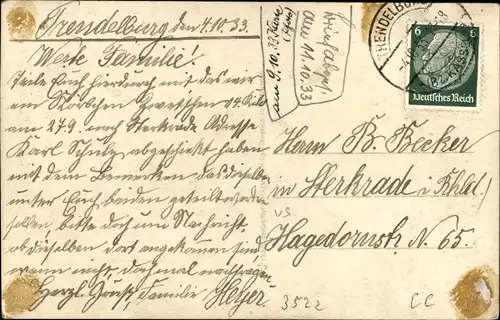 Trendelburg den 4.10.33.
Werte Familie!
Teile Euch hierdurch mit das wir
ein Körbchen Zwetschen 14 Kilo
am 27.9. nach Sterkrade Adresse
Karl Schulz abgeschickt haben
mit dem Bemerken das dieselben
unter Euch beiden geteilt werden
sollen, bitte doch um Nachricht,
ob dieselben dort angekommen sind
wenn nicht, doch mal nachfragen.
Herzl. Grüße Familie Heyer.
am 9.10.33 Karte
am 11.10.33
TRENDELBURG
6 6
Deutsches Reich
Herrn B. Becker
in Sterkrade i. Rhld.
Hagedornstr. N. 65.
VS
3522
CC